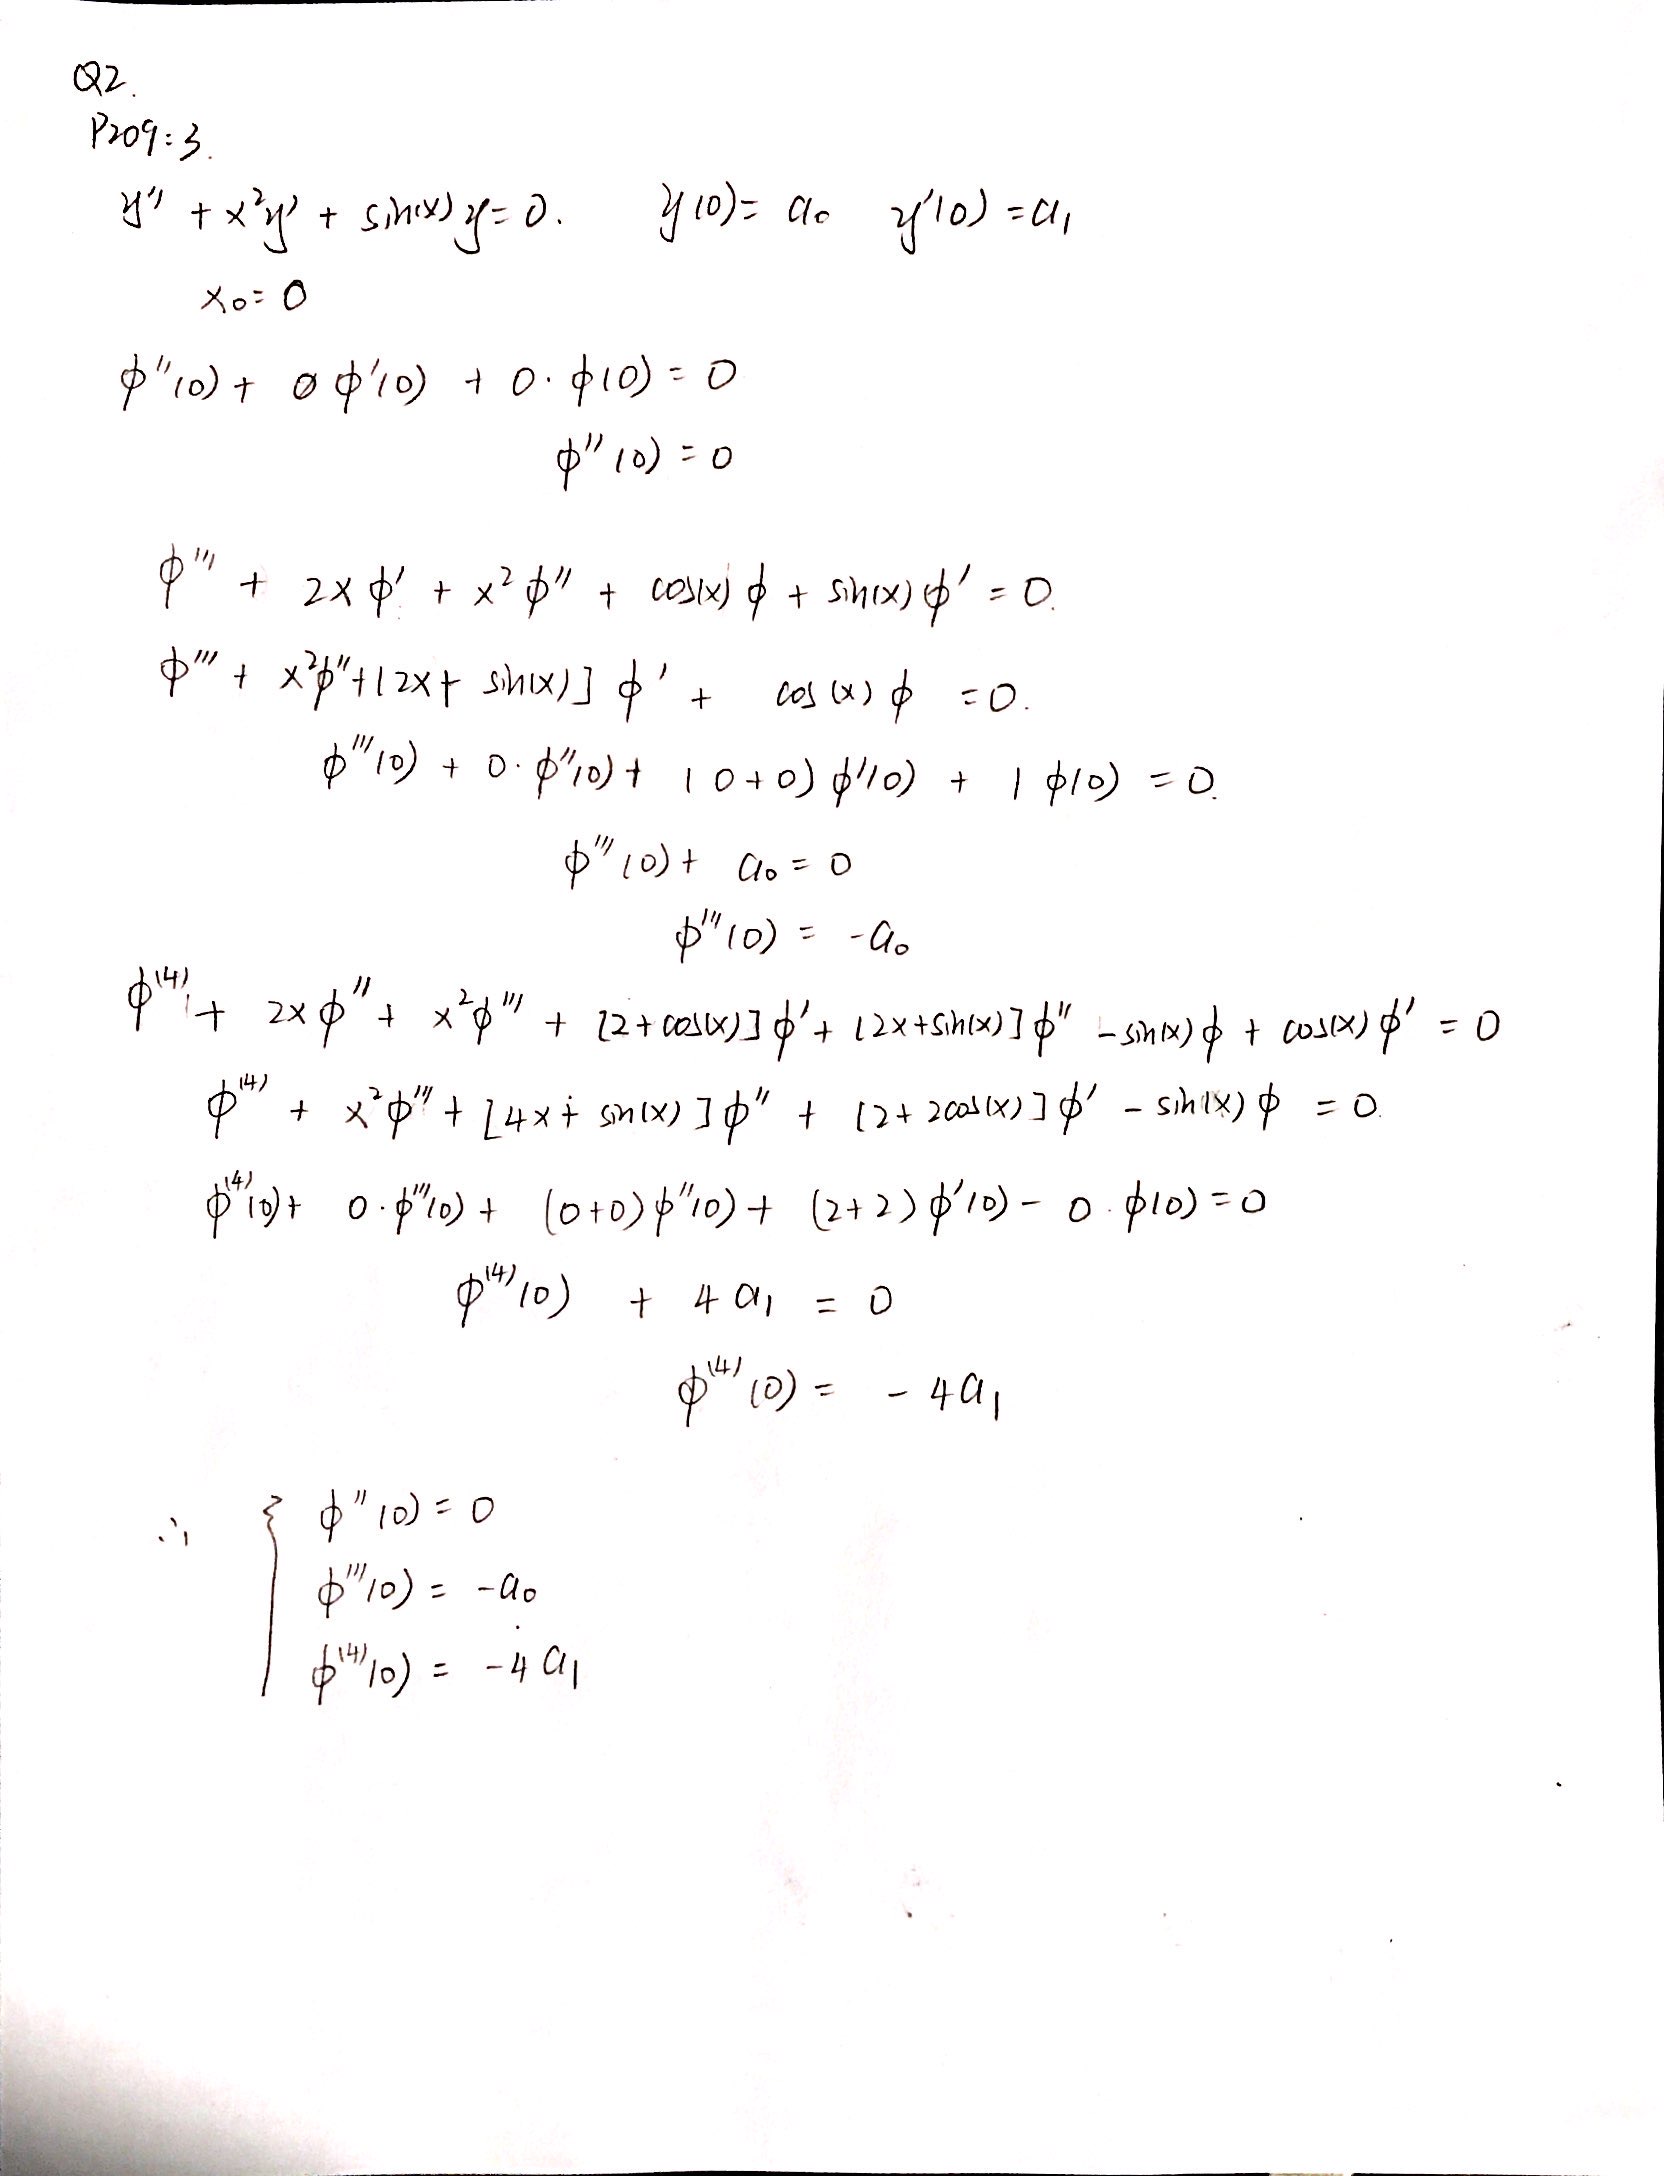 Q2.
P209:3.
y'' + x²y' + sin(x) y = 0. y(0) = a₀ y'(0) = a₁
x₀ = 0
ϕ''(0) + 0 ϕ'(0) + 0 · ϕ(0) = 0
ϕ''(0) = 0
ϕ''' + 2x ϕ' + x² ϕ'' + cos(x) ϕ + sin(x) ϕ' = 0.
ϕ''' + x²ϕ'' + [2x + sin(x)] ϕ' + cos(x) ϕ = 0.
ϕ'''(0) + 0 · ϕ''(0) + (0+0) ϕ'(0) + 1 ϕ(0) = 0.
ϕ'''(0) + a₀ = 0
ϕ'''(0) = -a₀
ϕ⁽⁴⁾ + 2x ϕ'' + x²ϕ''' + [2+cos(x)] ϕ' + [2x+sin(x)] ϕ'' - sin(x) ϕ + cos(x) ϕ' = 0
ϕ⁽⁴⁾ + x²ϕ''' + [4x + sin(x)] ϕ'' + [2+2cos(x)] ϕ' - sin(x) ϕ = 0.
ϕ⁽⁴⁾(0) + 0 · ϕ'''(0) + (0+0) ϕ''(0) + (2+2) ϕ'(0) - 0 · ϕ(0) = 0
ϕ⁽⁴⁾(0) + 4 a₁ = 0
ϕ⁽⁴⁾(0) = - 4a₁
∴ { ϕ''(0) = 0
ϕ'''(0) = -a₀
ϕ⁽⁴⁾(0) = -4 a₁